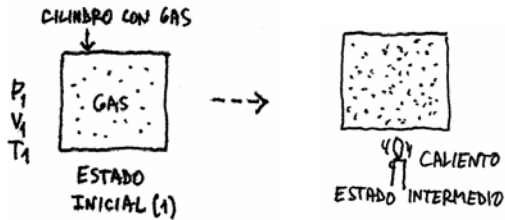 CILINDRO CON GAS
P1
V1
T1
GAS
ESTADO
INICIAL (1)
CALIENTO
ESTADO INTERMEDIO